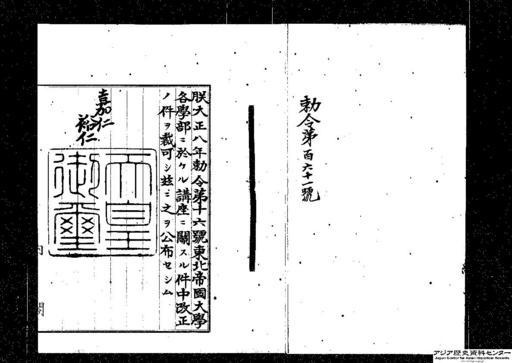 勅令第百六十一號
朕大正八年勅令第十六號東北帝國大學
各學部ニ於ケル講座ニ關スル件中改正
ノ件ヲ裁可シ玆ニ之ヲ公布セシム
嘉仁
裕仁
天皇御璽
内閣
アジア歴史資料センター
Japan Center for Asian Historical Records